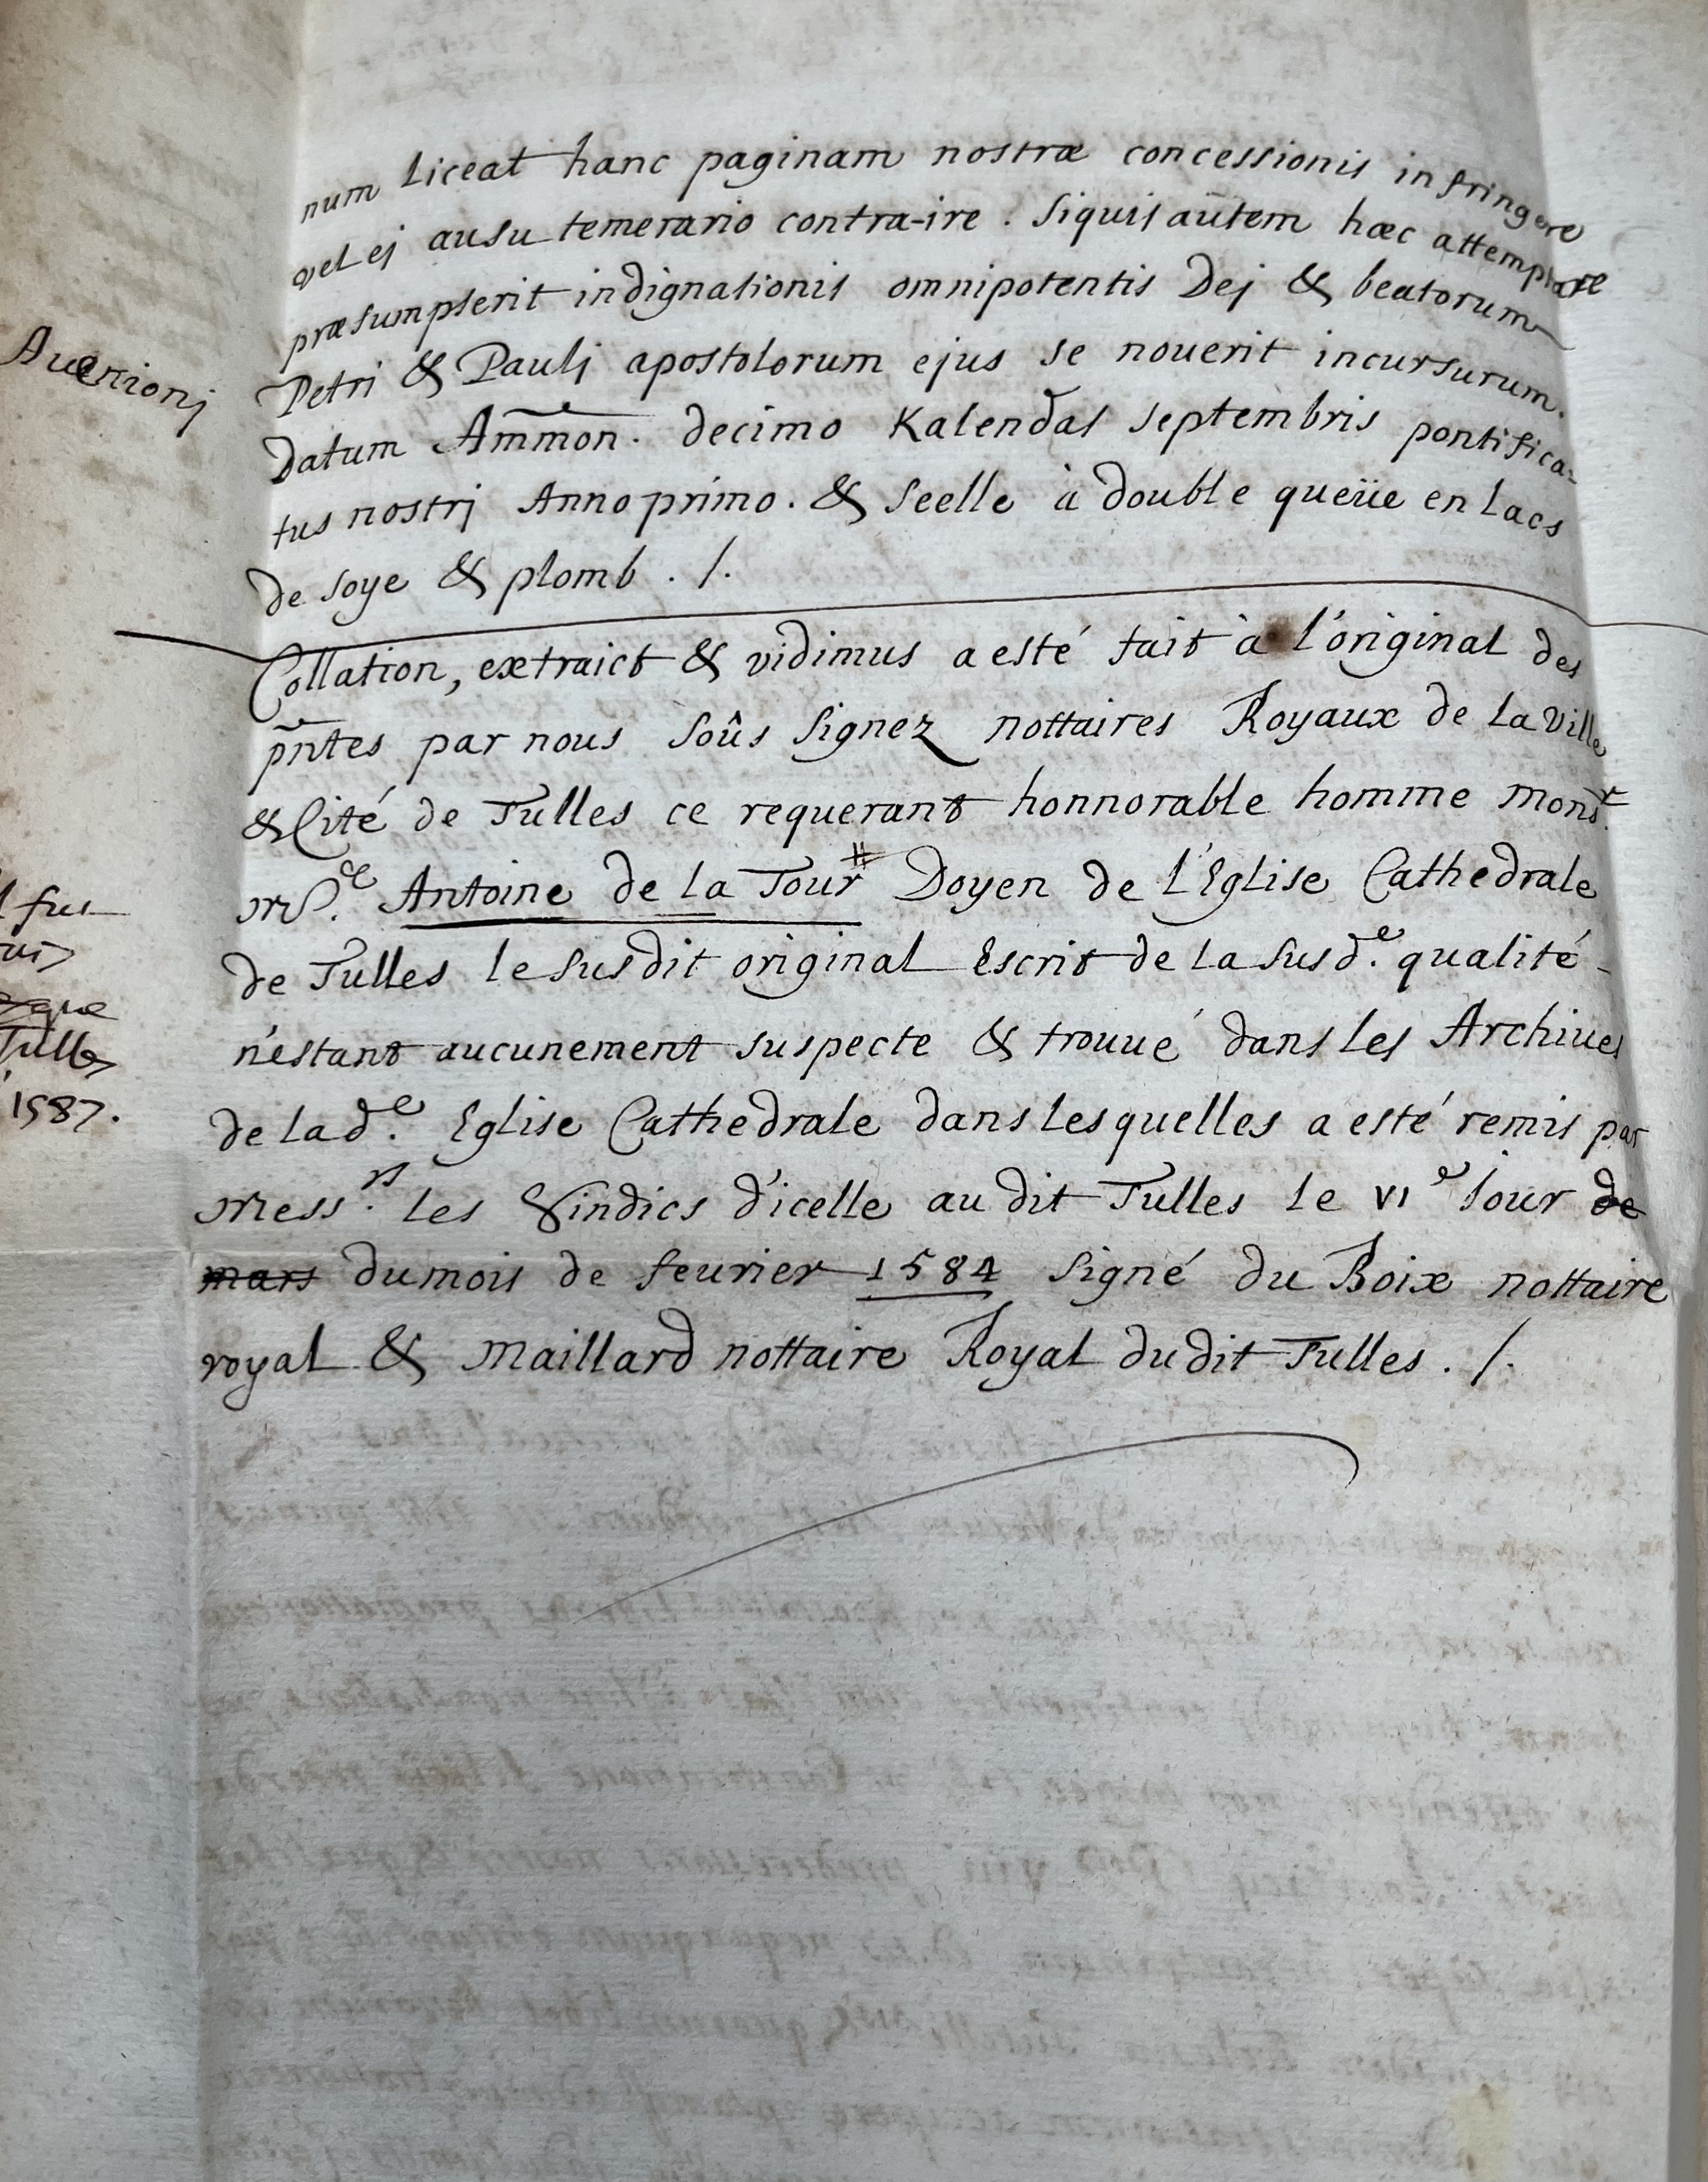 num liceat hanc paginam nostræ concessionis infringere
vel ej ausu temerario contra-ire . siquis aũtem hæc attemptare
præsumpserit indignationis omnipotentis Dej & beatorum
Avenionj
Petri & Paulj apostolorum ejus se nouerit incursurum.
Datum Ammon. decimo Kalendas septembris pontifica-
tus nostrj Anno primo . & seelle à double queüe en lacs
de soye & plomb . /.
Collation, extraict & vidimus a esté fait à l'original des
pñtes par nous soûs signez nottaires Royaux de la ville
& Cité de Tulles ce requerant honnorable homme monsr.
Antoine de la Tour # Doyen de l'Eglise Cathedrale
fut
de Tulles le susdit original Escrit de la susd.e qualité -
n'estant aucunement suspecte & trouué dans les Archiues
Tulles
1587.
de lad.e Eglise Cathedrale dans lesquelles a esté remis par
Mess.rs les Sindics d'icelle au dit Tulles le VI.e jour de
mars du mois de feurier 1584 signé du Boix nottaire
royal & Maillard nottaire Royal dudit Tulles . /.